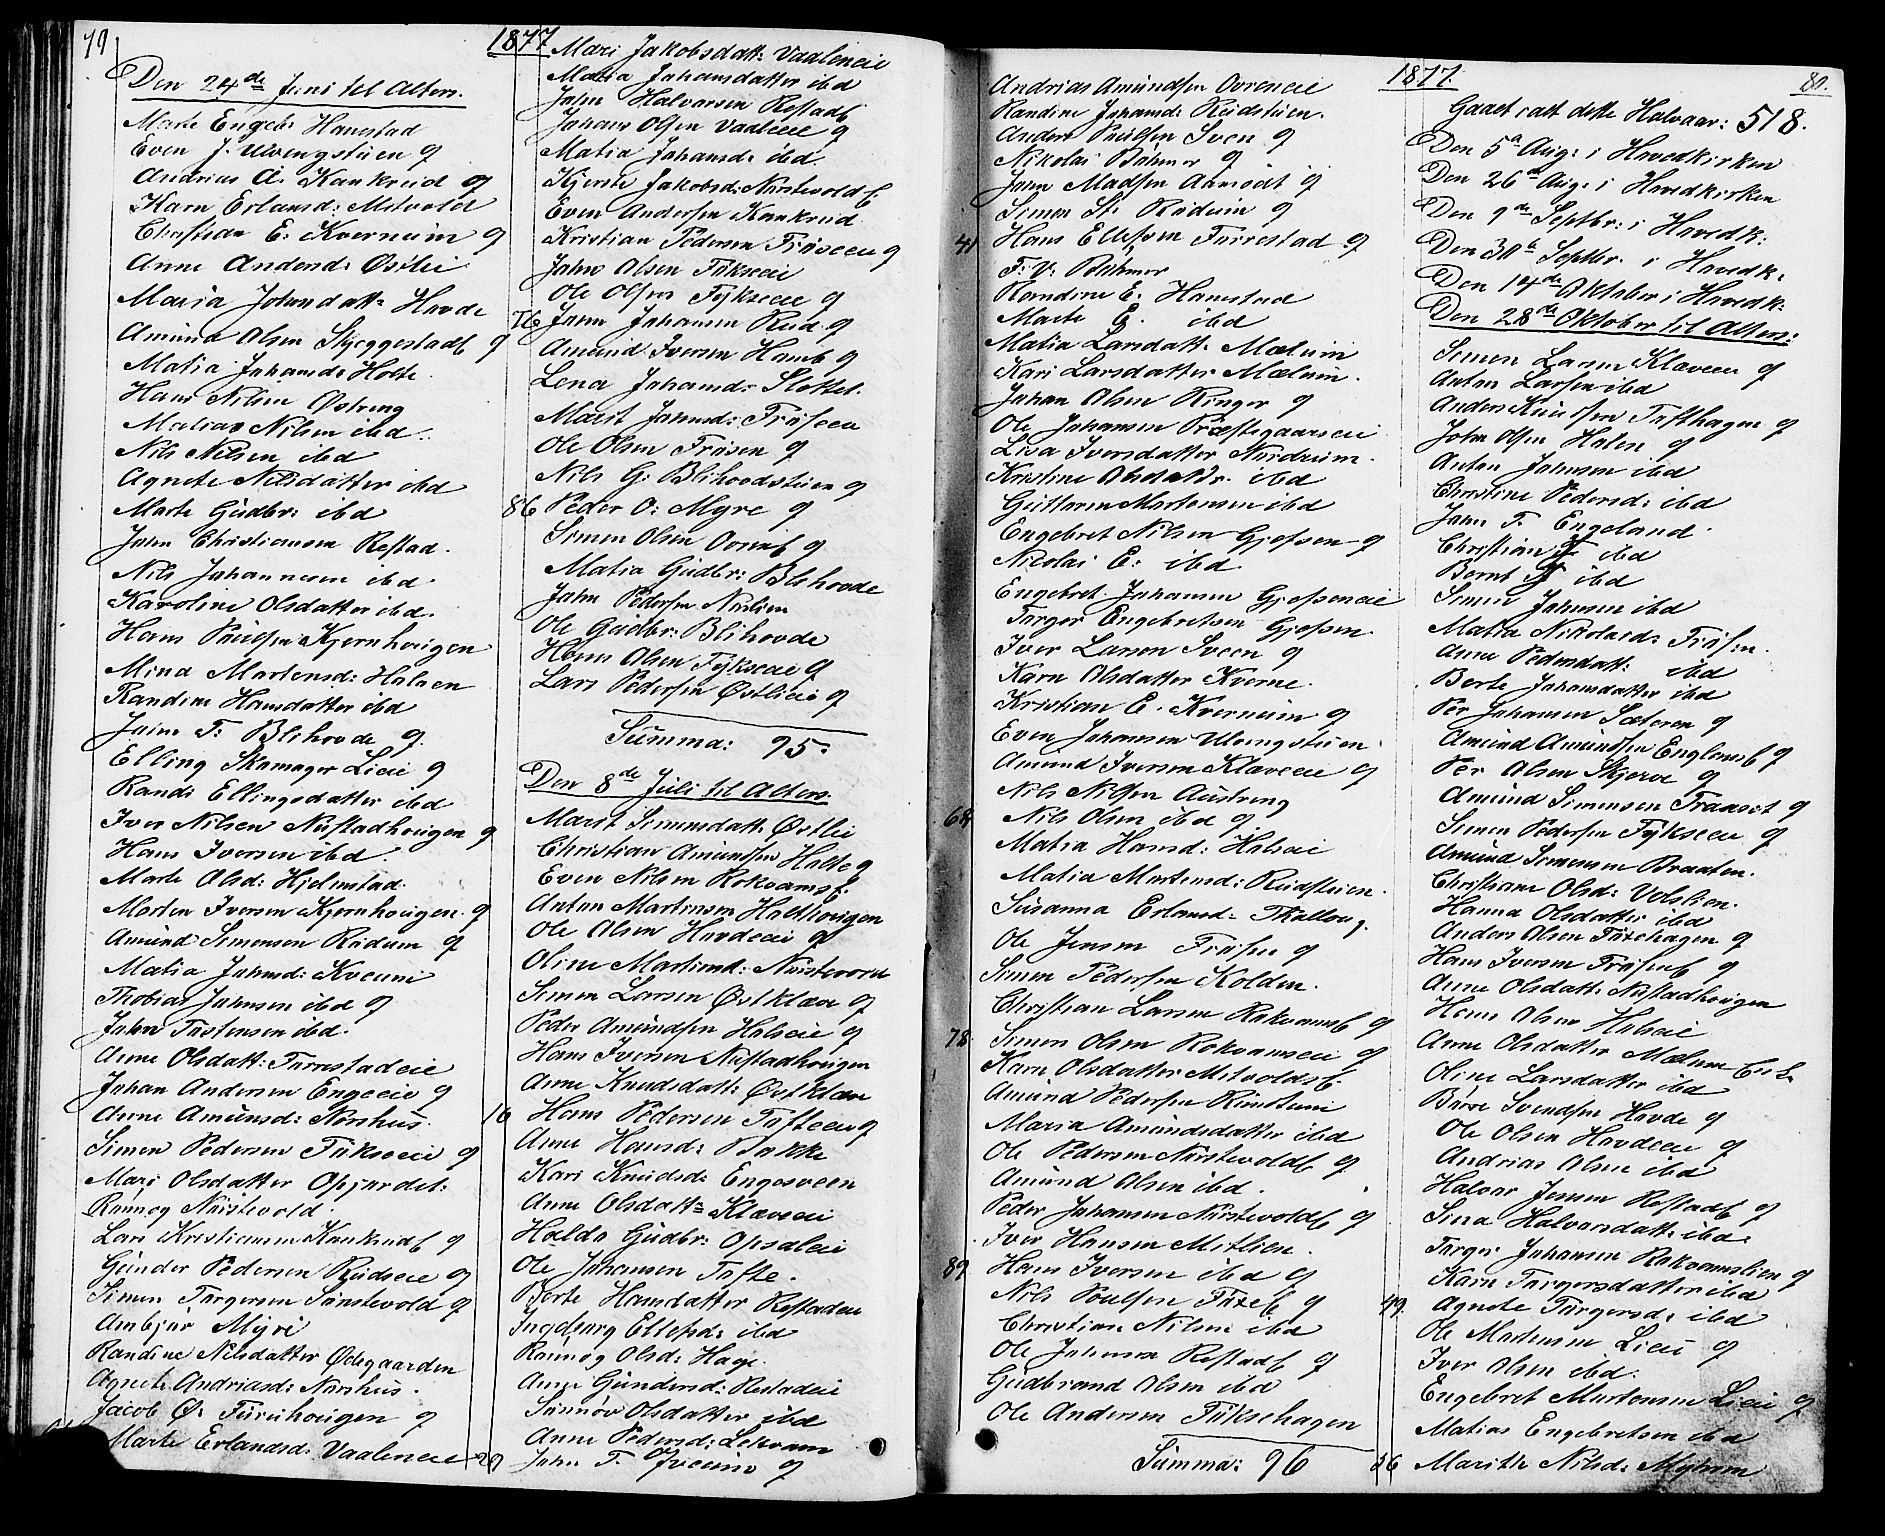 79
1877
Den 24de Juni til Alters.
Marte Engebr: Hanestad
Even J. Ulvengstuen og
Andrias A. Kankrud og
Karn Erlansd: Mitvoldt
Christian E: Kverneim og
Anne Andersd: Østlie
Maria Johansdatt: Hovde
Amund Olsen Skjeggestad og
Matia Johansd: Holte
Hans Nilsen Østreng
Matias Nilsen ibd.
Nils Nilsen ibd
Agnete Nilsdatter ibd
Marte Gudbr: ibd
John Christiansen Røstad.
Nils Johannesen ibd.
Karoline Olsdatter ibd.
Hans Paulsen Kjernhougen
Mina Martensd: Halsen
Randine Hansdatter ibd
John T. Blihovde og
Elling Skamager Lieie og
Randi Ellingsdatter ibd
Iver Nilsen Nustadhougen og
Hans Iversen ibd.
Marte Olsd: Hjelmstad.
Morten Iversen Kjernhougen og
Amund Simensen Rødum og
Matia Johnsd: Kveum
Thobias Johnsen ibd og
John Tostensen ibd.
Anne Olsdatt: Torrestadeie
Johan Andersen Engeeie og
Anne Amunsd: Norshus.
Simen Pedersen Fykseeie og
Mari Olsdatter Opjordet.
Rønnog Nustevold.
Lars Kristiansen Kankrud og
Gunder Pedersen Rudseie og
Simen Torgersen Sønstevold og
Ambjør Myre
Randine Nilsdatter Ødegaarden
Agnete Andriasd: Norshus.
Jacob Ø. Furuhougen og
Marte Erlandsd: Vaaleneie
Mari Jakobsdatt: Vaaleneie
Matia Johansdatter ibd
John Halvorsen Røstad
Johans Olsen Vaaleeie og
Matia Johansd: ibd.
Kjersti Jakobsd: Nustevold
Even Andersen Kankrud
Kristian Pedersen Frøseeie og
John Olsen Fykseeie
Ole Olsen Fykseeie og
76 John Johansen Rud og
Amund Iversen Hamb og
Lena Johansd: Slottet.
Marit Johnsd: Frøseeie
Ole Olsen Frøsen og
Nils G. Blihovdstuen og
86 Peder O: Myre og
Simen Olsen Ovren og
Matia Gudbr: Blihovde
John Pedersen Nuslien
Ole Gudbr: Blihovde
Hans Olsen Fykseeie og
Lars Pedersen Østlieie og
Summa: 95.
Den 8de Juli til Alters.
Marit Simensdatt: Østlie
Christian Amundsen Holte og
Even Nilsen Rokvam
Anton Martinsen Holthougen
Ole Olsen Hovdeeie og
Oline Martinsd: Nustevold
Simen Larsen Østklæv og
Peder Amundsen Halseie og
Hans Iversen Nustadhougen
Anne Knudsdatt: Østklæv
10 Hans Pedersen Tofteeie og
Anne Hansd: Bakke
Kari Knudsd: Engesveen
Anne Olsdatt: Klæveeie
Halda Gudbr: Opsaleie
Ole Johansen Tofte.
Berte Hansdatter Røstadeie
Ingeborg Ellefsd: ibd
Rønnog Olsd: Hage.
Anne Gundersd: Røstadeie
Sønnøv Olsdatter ibd
Anne Pedersd: Løkvam
John T. Kveum og
1877.
80.
Andrias Amundsen Ovreneie
Randine Johansd: Rudstuen.
Anders Paulsen Sveen og
Nikolai Bøhmer og
John Madsen Aamodt og
Simen St: Rødum og
41 Hans Ellefsen Torrestad og
F: V: Bøhmer
Randine E. Hanestad
Marte E. ibd
Matia Larsdatt: Mælum
Kari Larsdatter Mælum.
Johan Olsen Ringer og
Ole Johansen Præstegaardseie
Lisa Iversdatter Nordrum.
Kristine Olsdatter ibd
Guttorm Mortensen ibd
Engebret Nilsen Gjefsen og
Nicolai E: ibd
Engebret Johansen Gjefseneie
Torger Engebretsen Gjefsen.
Iver Larsen Sveen og
Karn Olsdatter Kverne.
Kristian E. Kverneim og
Even Johansen Ulvengstuen.
Amund Iversen Klæveeie og
Nils Nilsen Austreng
64 Nils Olsen ibd og
Matia Hansd: Halseie
Matia Mortensd: Rudstuen.
Susanna Erlansd: Thallaug.
Ole Jensen Frøsen og
Simen Pedersen Kolden.
Christian Larsen Rokvam og
78. Simen Olsen Rokvamseie og
Karn Olsdatter Mitvolds
Amund Pedersen Rundtom
Maria Amundsdatter ibd
Ole Pedersen Nustevold og
Amund Olsen ibd.
Peder Johansen Nustevold og
Iver Hansen Mitlien.
89 Hans Iversen ibd og
Nils Poulsen Fæxe og
Christian Nilsen ibd
Ole Johnsen Røstad og
Gudbrand Olsen ibd
Ole Andersen Fyksehagen
Summa: 96
Gaaet i alt dette Halvaar: 518.
Den 5te Aug: i Hovedkirken
Den 26de Aug: i Hovedkirken
Den 9de Septbr: i Hovedk:
Den 30te Septbr. i Hovedk.
Den 14de Oktober i Hovedk.
Den 28de Oktober til Alters:
Simen Larsen Klæveeie og
Anton Larsen ibd
Anders Knudsen Tofthagen og
John Olsen Halen og
Anton Johnsen ibd
Christine Pedersd: ibd
John T. Engeland.
Christian T. ibd
Bernt T. ibd
Simen Johnsen ibd
Matia Nikolaid: Frøsen.
Anne Pedersdatt: ibd
Berte Johansdatter ibd
Per Johansen Sæteren og
Amund Amundsen Engene og
Per Olsen Skjerve og
Amund Simensen Traaset og
Simen Pedersen Fykseeie og
Amund Simensen Braaten.
Christiane Olsd: Volslien.
Hanna Olsdatter ibd
Anders Olsen Fæxehagen og
Hans Iversen Frøsen og
Anne Olsdatt: Nustadhougen
Hans Olsen Halseie
Anne Olsdatter Mælum
Oline Larsdatter ibd
Børre Svendsen Hovde og
Ole Olsen Hovdeeie og
Andrias Olsen ibd
Halvor Jensen Røstad og
Sina Halvorsdatt: ibd.
Torger Johansen Rokvamslien og
Karn Torgersdatter ibd
49. Agnete Torgersd: ibd
Ole Martinsen Lieie og
Iver Olsen ibd.
Engebret Martensen Lieie og
Matias Engebretsen ibd
56 Marithe Nilsd: Myhren